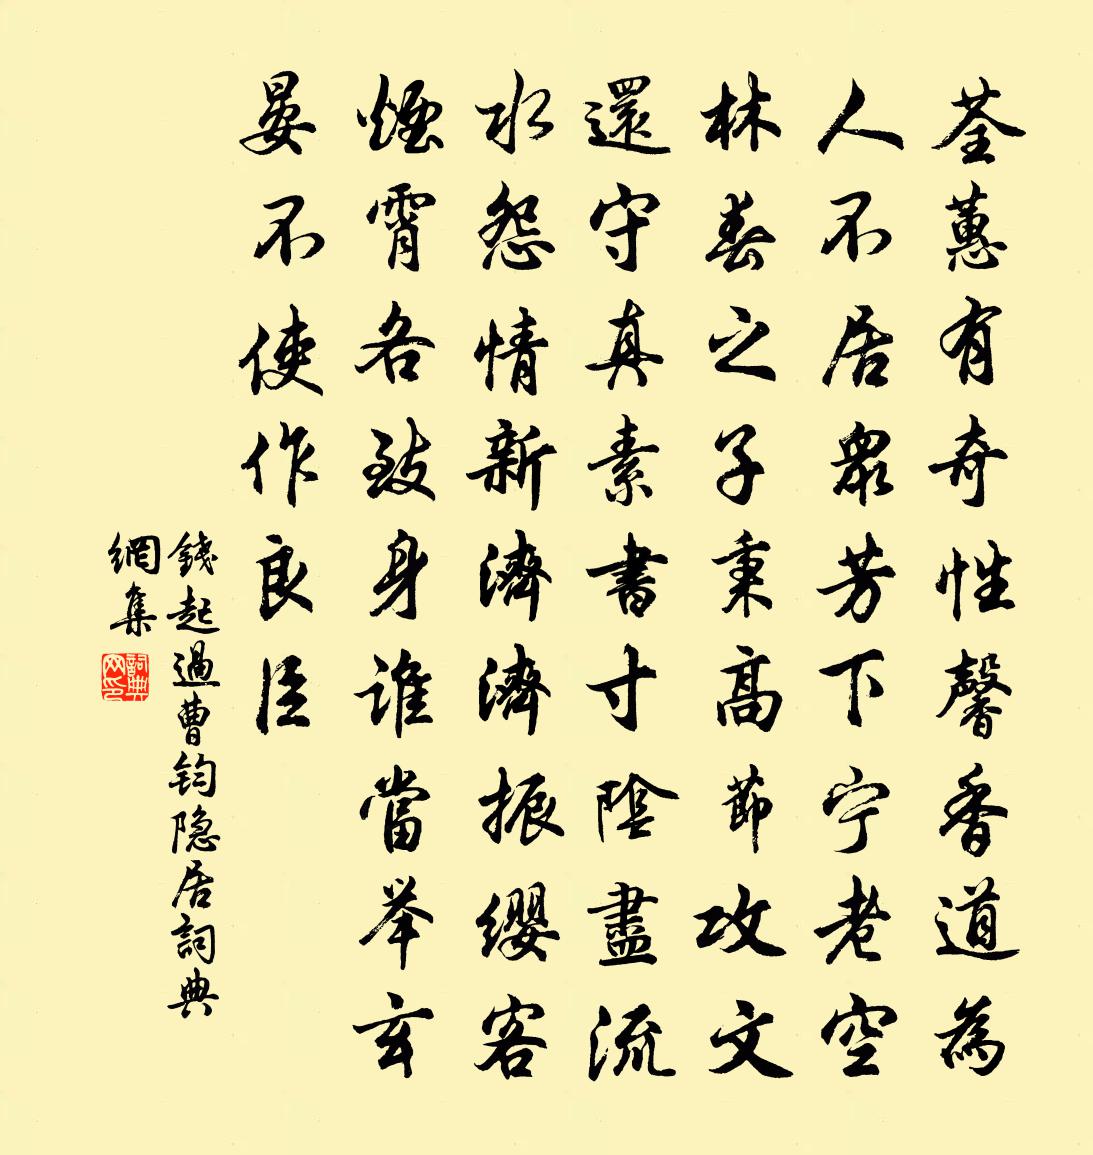 荃蕙有奇性馨香道為
人不居眾芳下宁老空
林春之子秉高節攻文
還守真素書寸陰盡流
水怨情新濟濟振纓客
煙霄各致身誰當举玄
晏不使作良臣
錢起過曹鈞隐居詞典
網集
詞典
网印